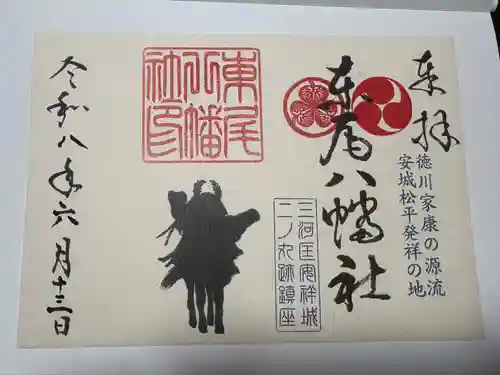 奉拝
徳川家康の源流
安城松平発祥の地
東尾八幡社
三河国安祥城
二ノ丸跡鎮座
東尾
八幡
社印
令和八年六月十三日